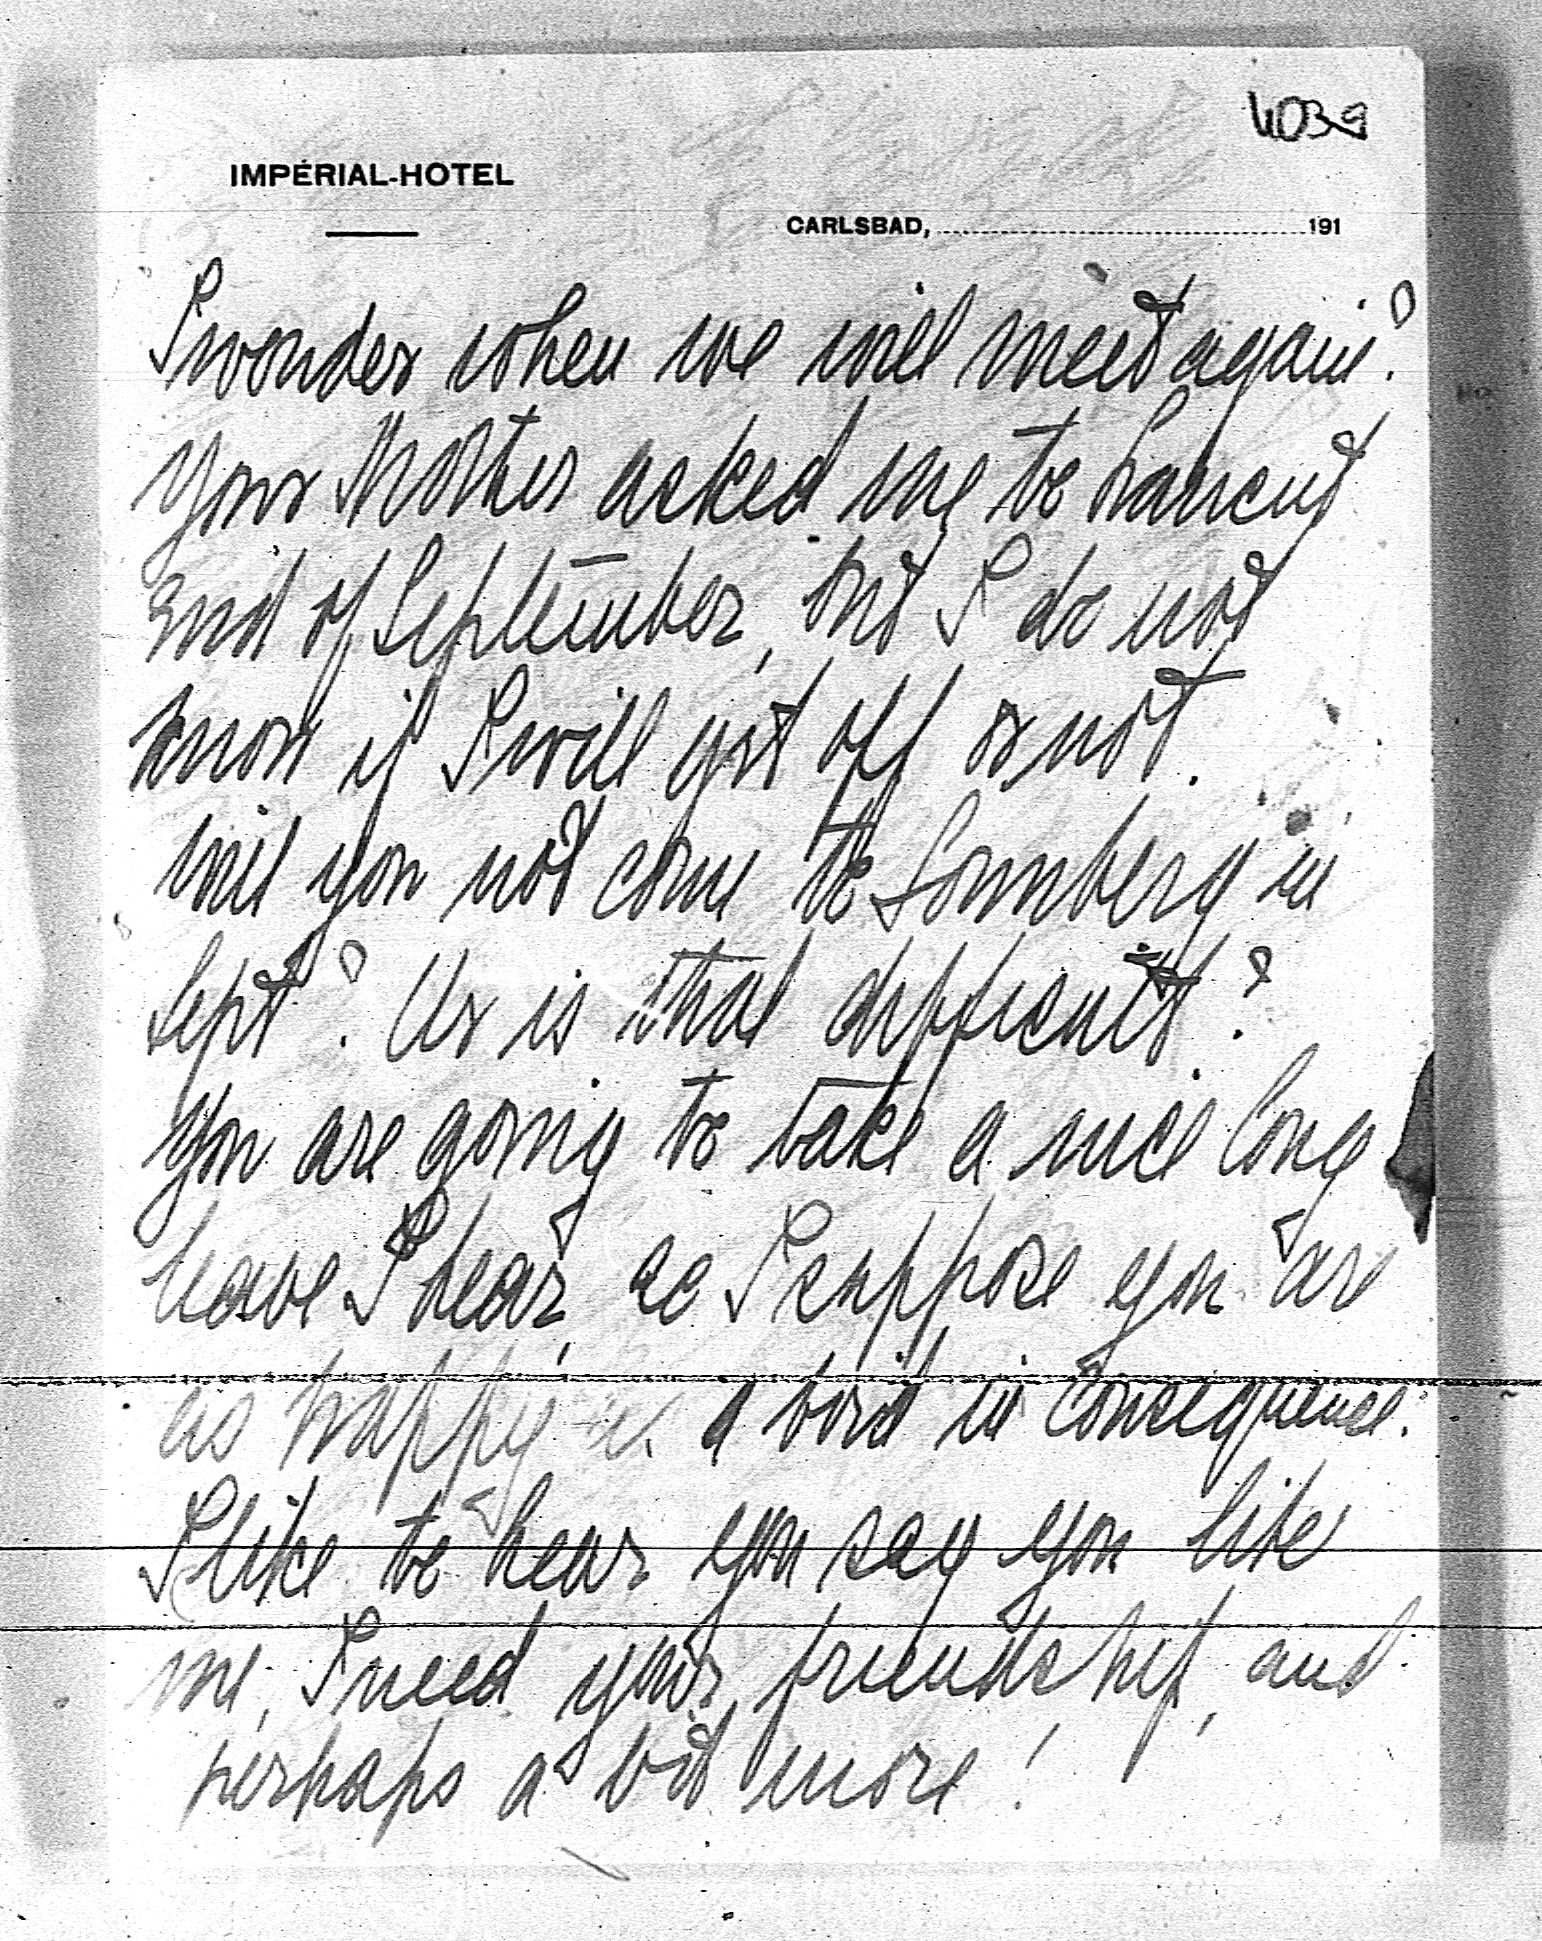 IMPÉRIAL-HOTEL
CARLSBAD, 191
I wonder when we will meet again?
Your Mother asked me to Lancut
end of September, but I do not
know if I will get off or not.
Will you not come to Sonnberg in
Sept? Or is that difficult?
You are going to take a nice long
leave I hear, so I suppose you are
as happy as a bird in consequence.
I like to hear you say you like
me, I need your friendship, and
perhaps a bit more!